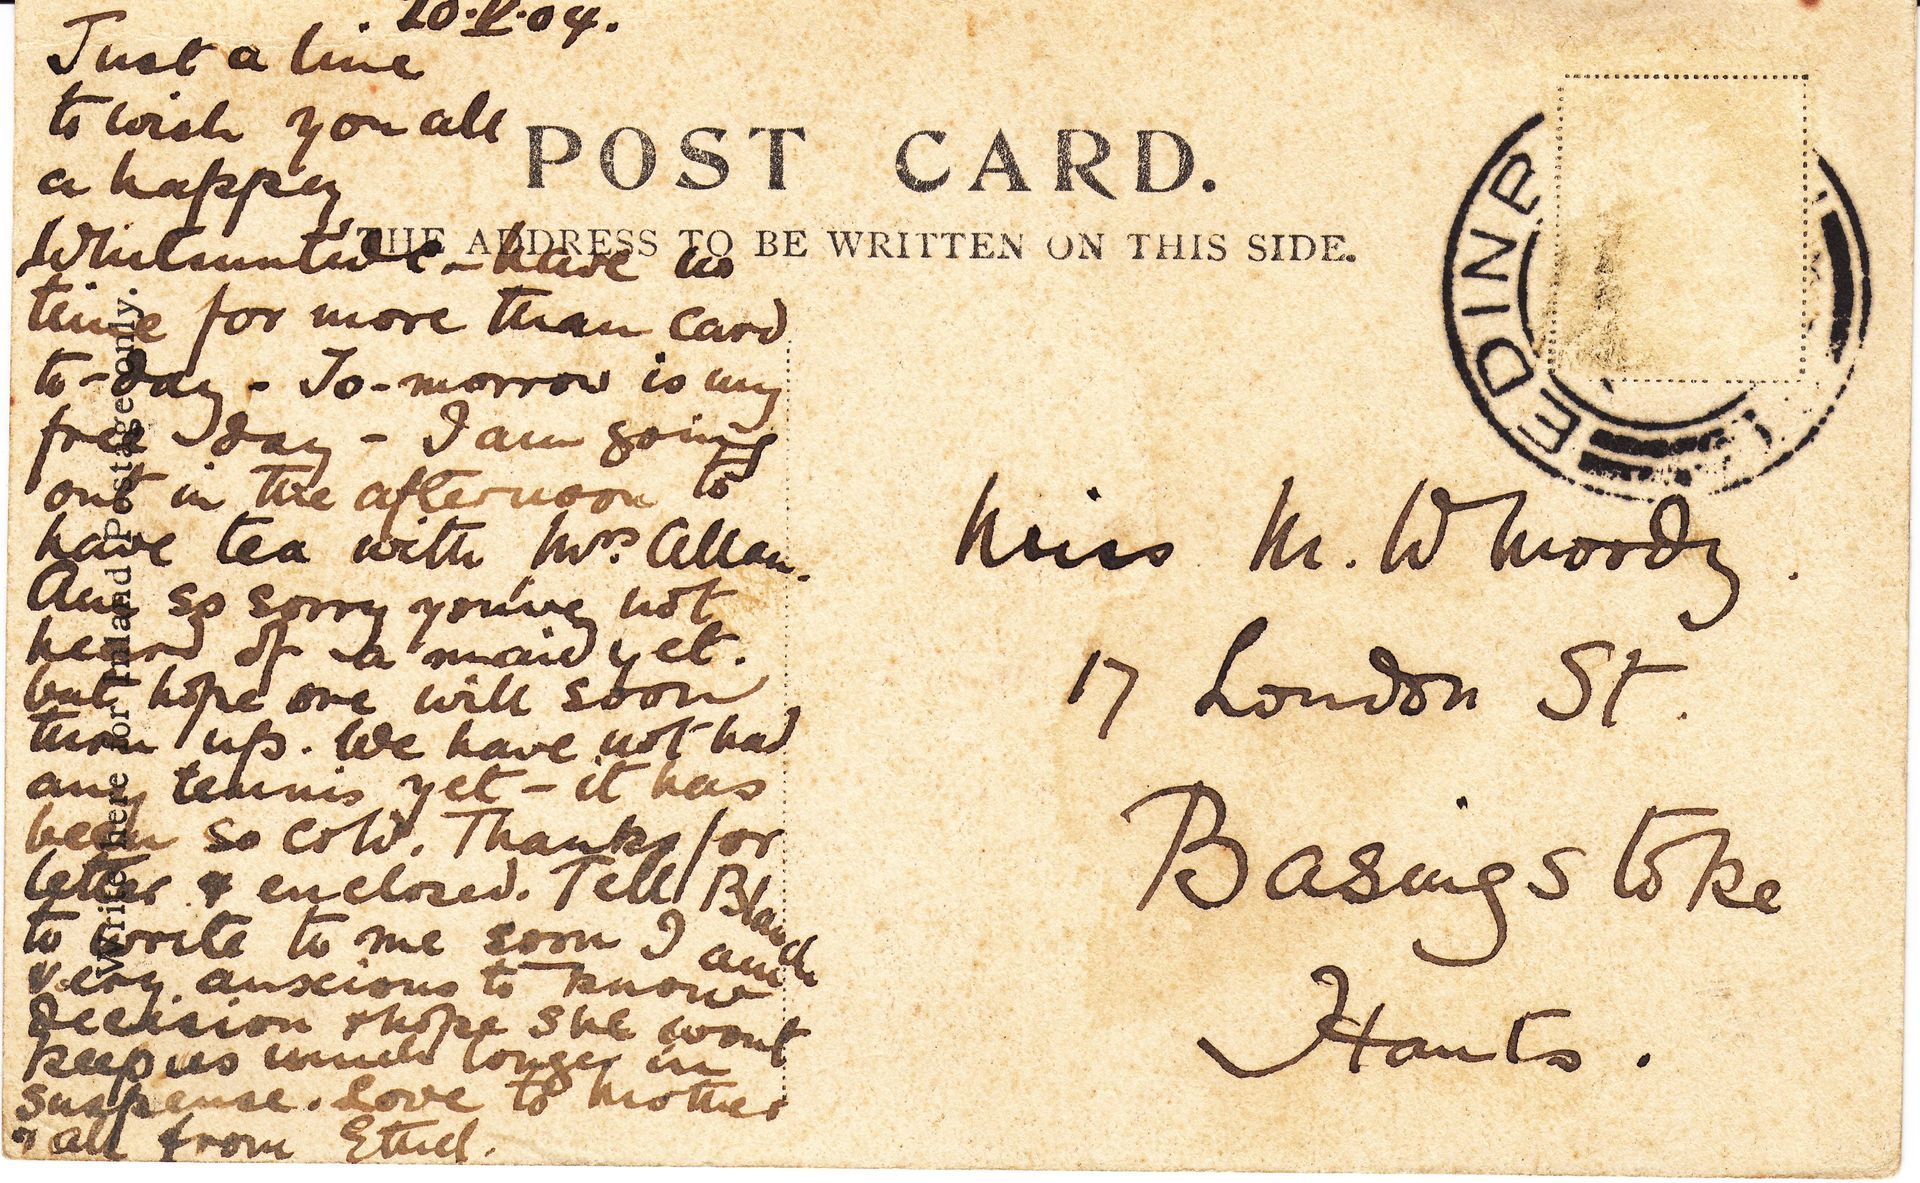 20.V.04.
Just a line
to wish you all
a happy
Whitsuntide - have no
time for more than card
to-day - To-morrow is my
free day - I am going
out in the afternoon to
have tea with Mrs. Allan.
Am so sorry you've not
heard of a maid yet.
but hope one will soon
turn up. We have not had
any tennis yet - it has
been so cold. Thanks for
letter & enclosed. Tell Blanch
to write to me soon I am
very anxious to know
decision & hope she wont
keep us much longer in
suspense. Love to mother
& all from Ethel.
Write here for Inland Postage only.
POST CARD.
THE ADDRESS TO BE WRITTEN ON THIS SIDE.
EDINB
Miss M. W Moody.
17 London St.
Basingstoke
Hants.